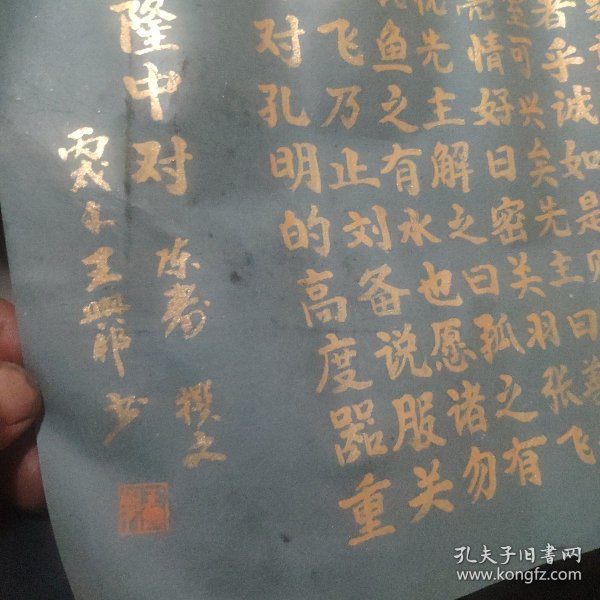 者乎诚如是则
室可兴矣先主曰
亮情好日密关羽张飞
先主解之曰孤之有
鱼之有水也愿诸勿
飞乃止刘备说服关
对孔明的高度器重
隆中对
陈寿 撰文
王 书
孔夫子旧书网
www.kongfz.com